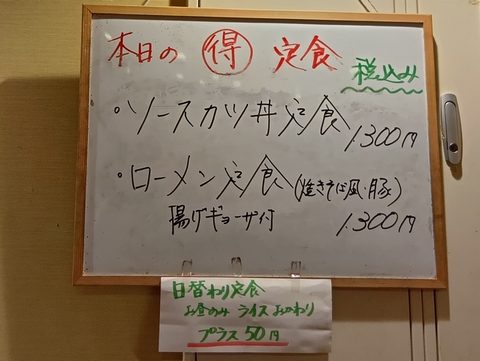 本日の 得 定食
税込み
・ソースカツ丼定食
1,300円
・ローメン定食(焼きそば風・豚)
揚げギョーザ付 1,300円
日替わり定食
お昼のみ ライスおかわり
プラス50円